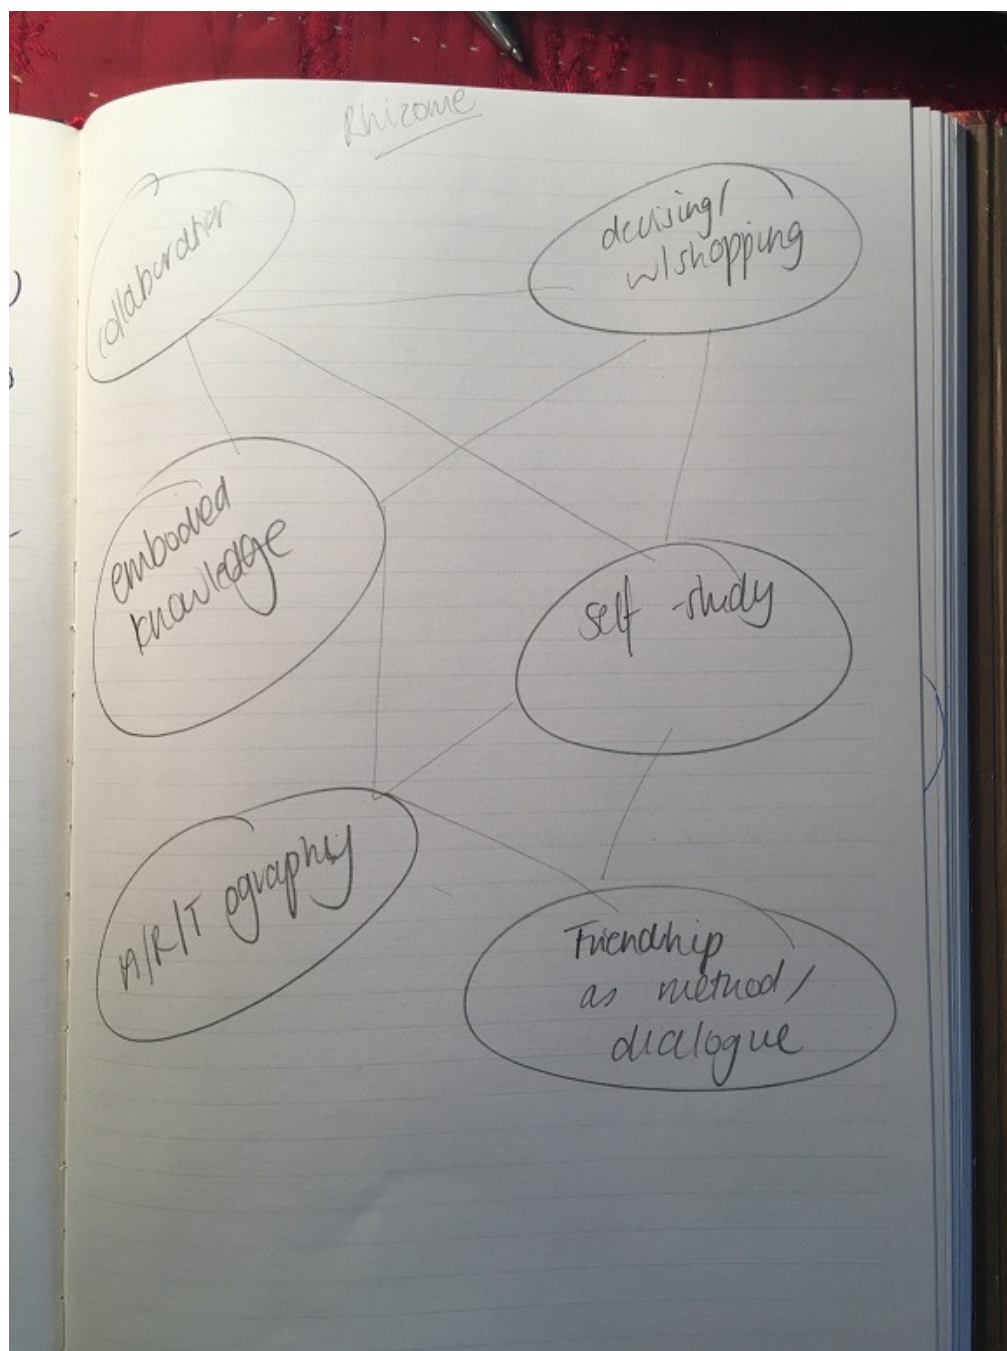 Rhizome
collaboration
devising/
w/shopping
embodied
knowledge
self-study
A/R/T ography
Friendship
as method/
dialogue